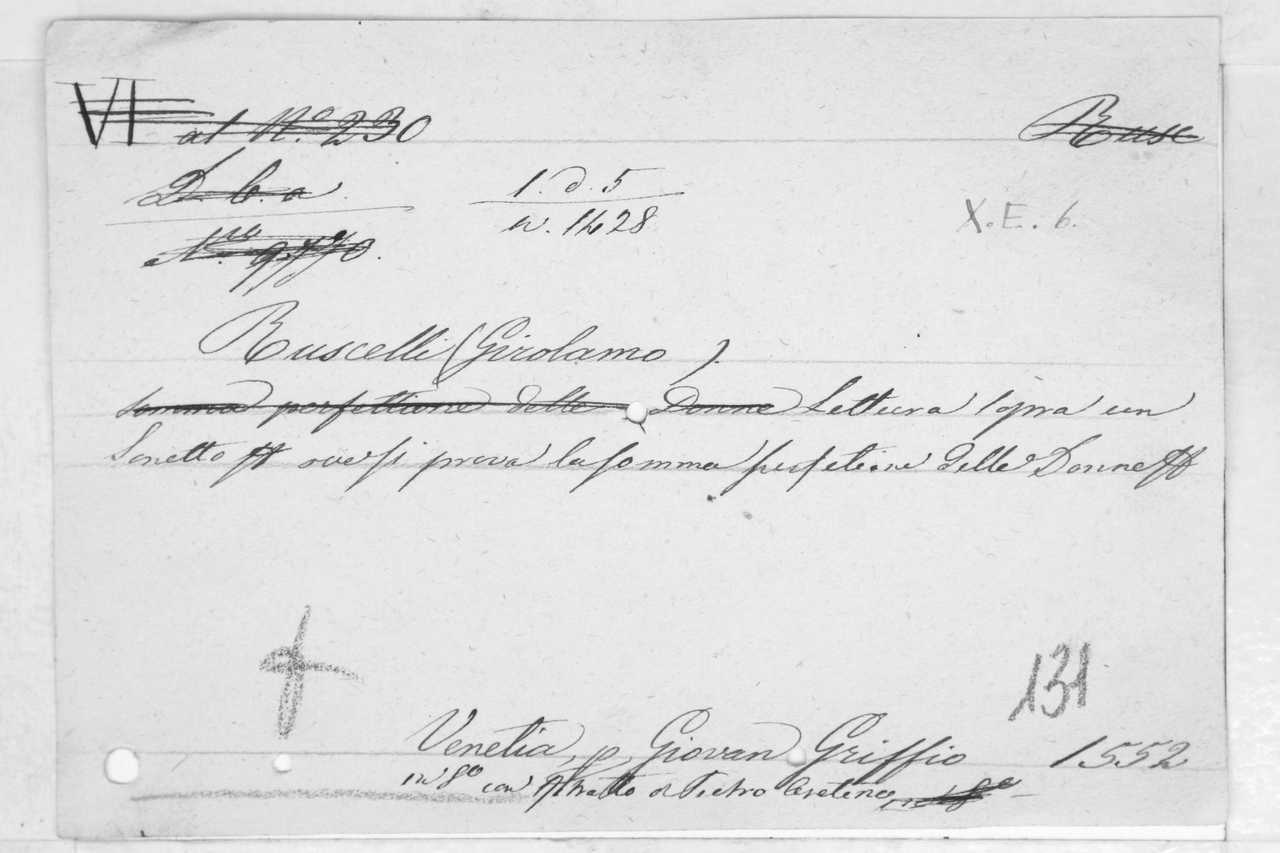 VI al Nº. 230 Rusc
D. b. a 1. d. 5
w. 1428 X. E. 6.
Nro
Ruscelli (Girolamo).
somma perfettione delle Donne Lettura sopra un
Sonetto ove si prova la somma perfetione delle Donne
131
Venetia, p Giovan Griffio 1552
in 8º con Ritratto di Pietro Aretino, in 8º